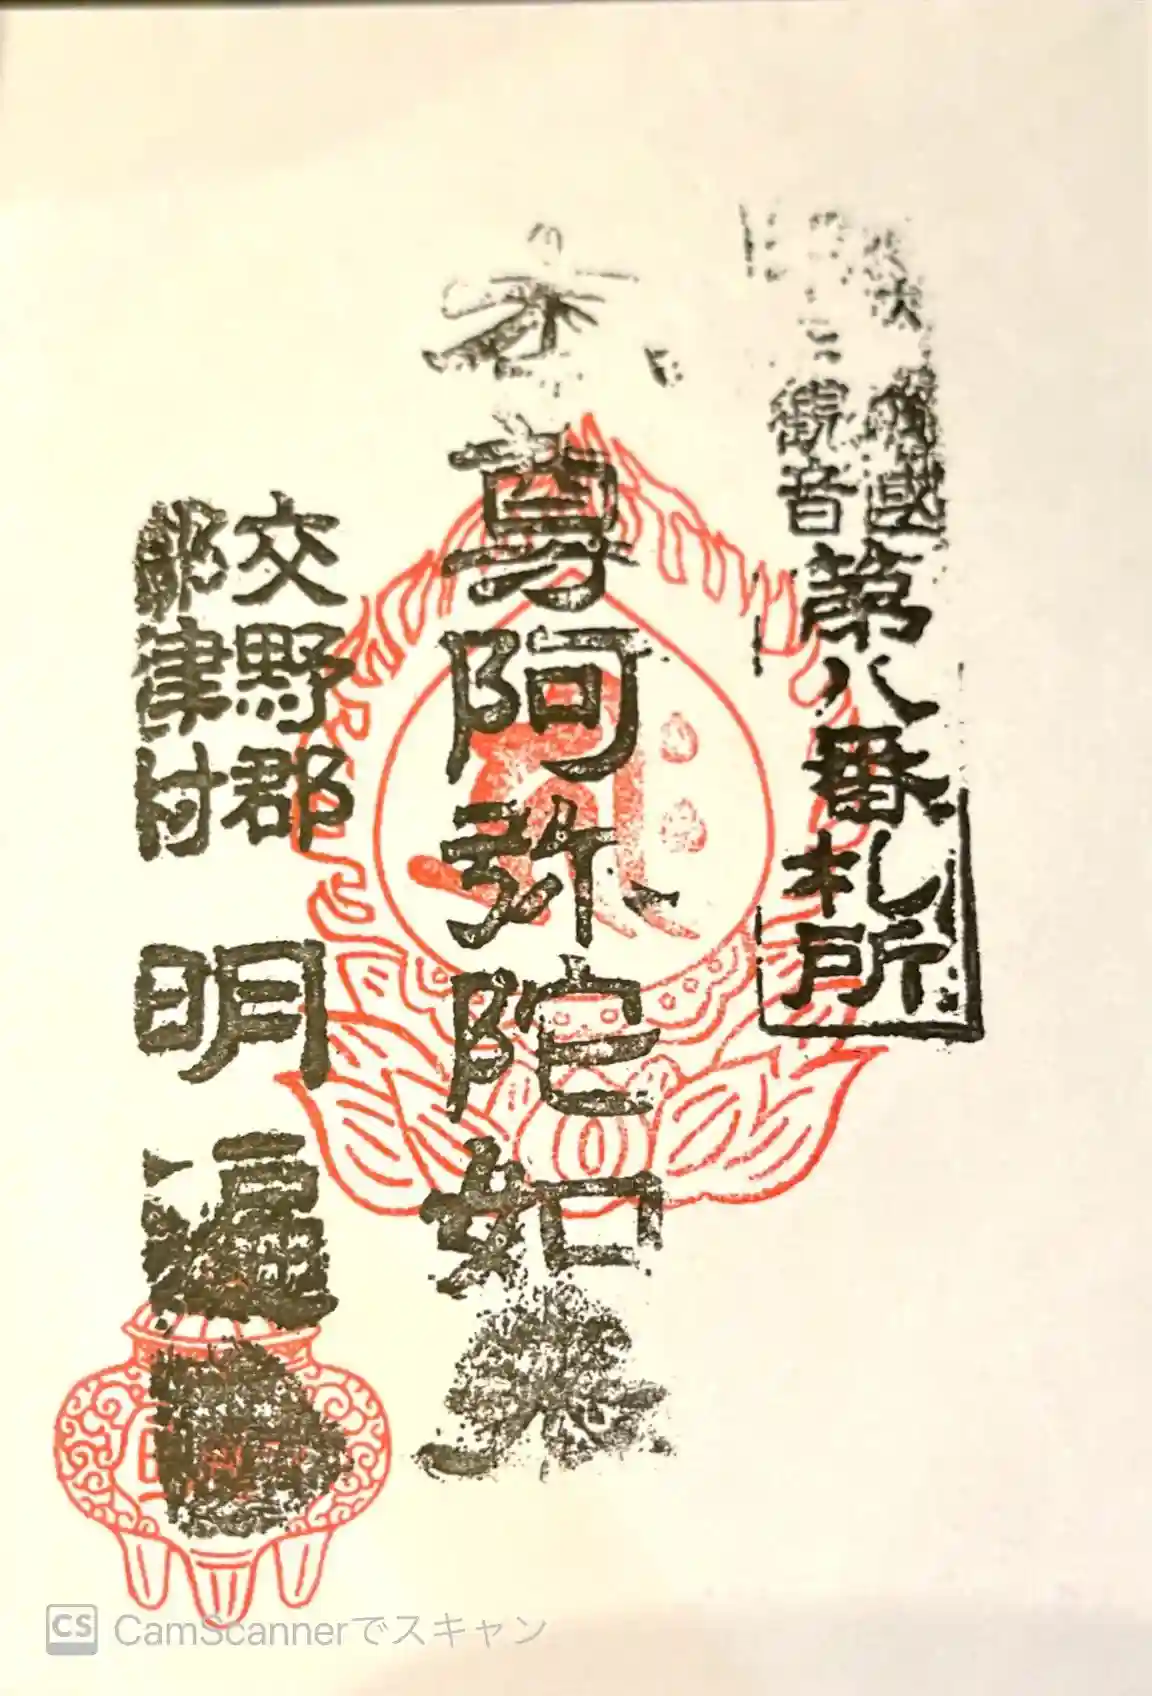 國
観音
第八番
札所
本尊阿弥陀如来
交野郡
郡津村
明遍
CamScannerでスキャン